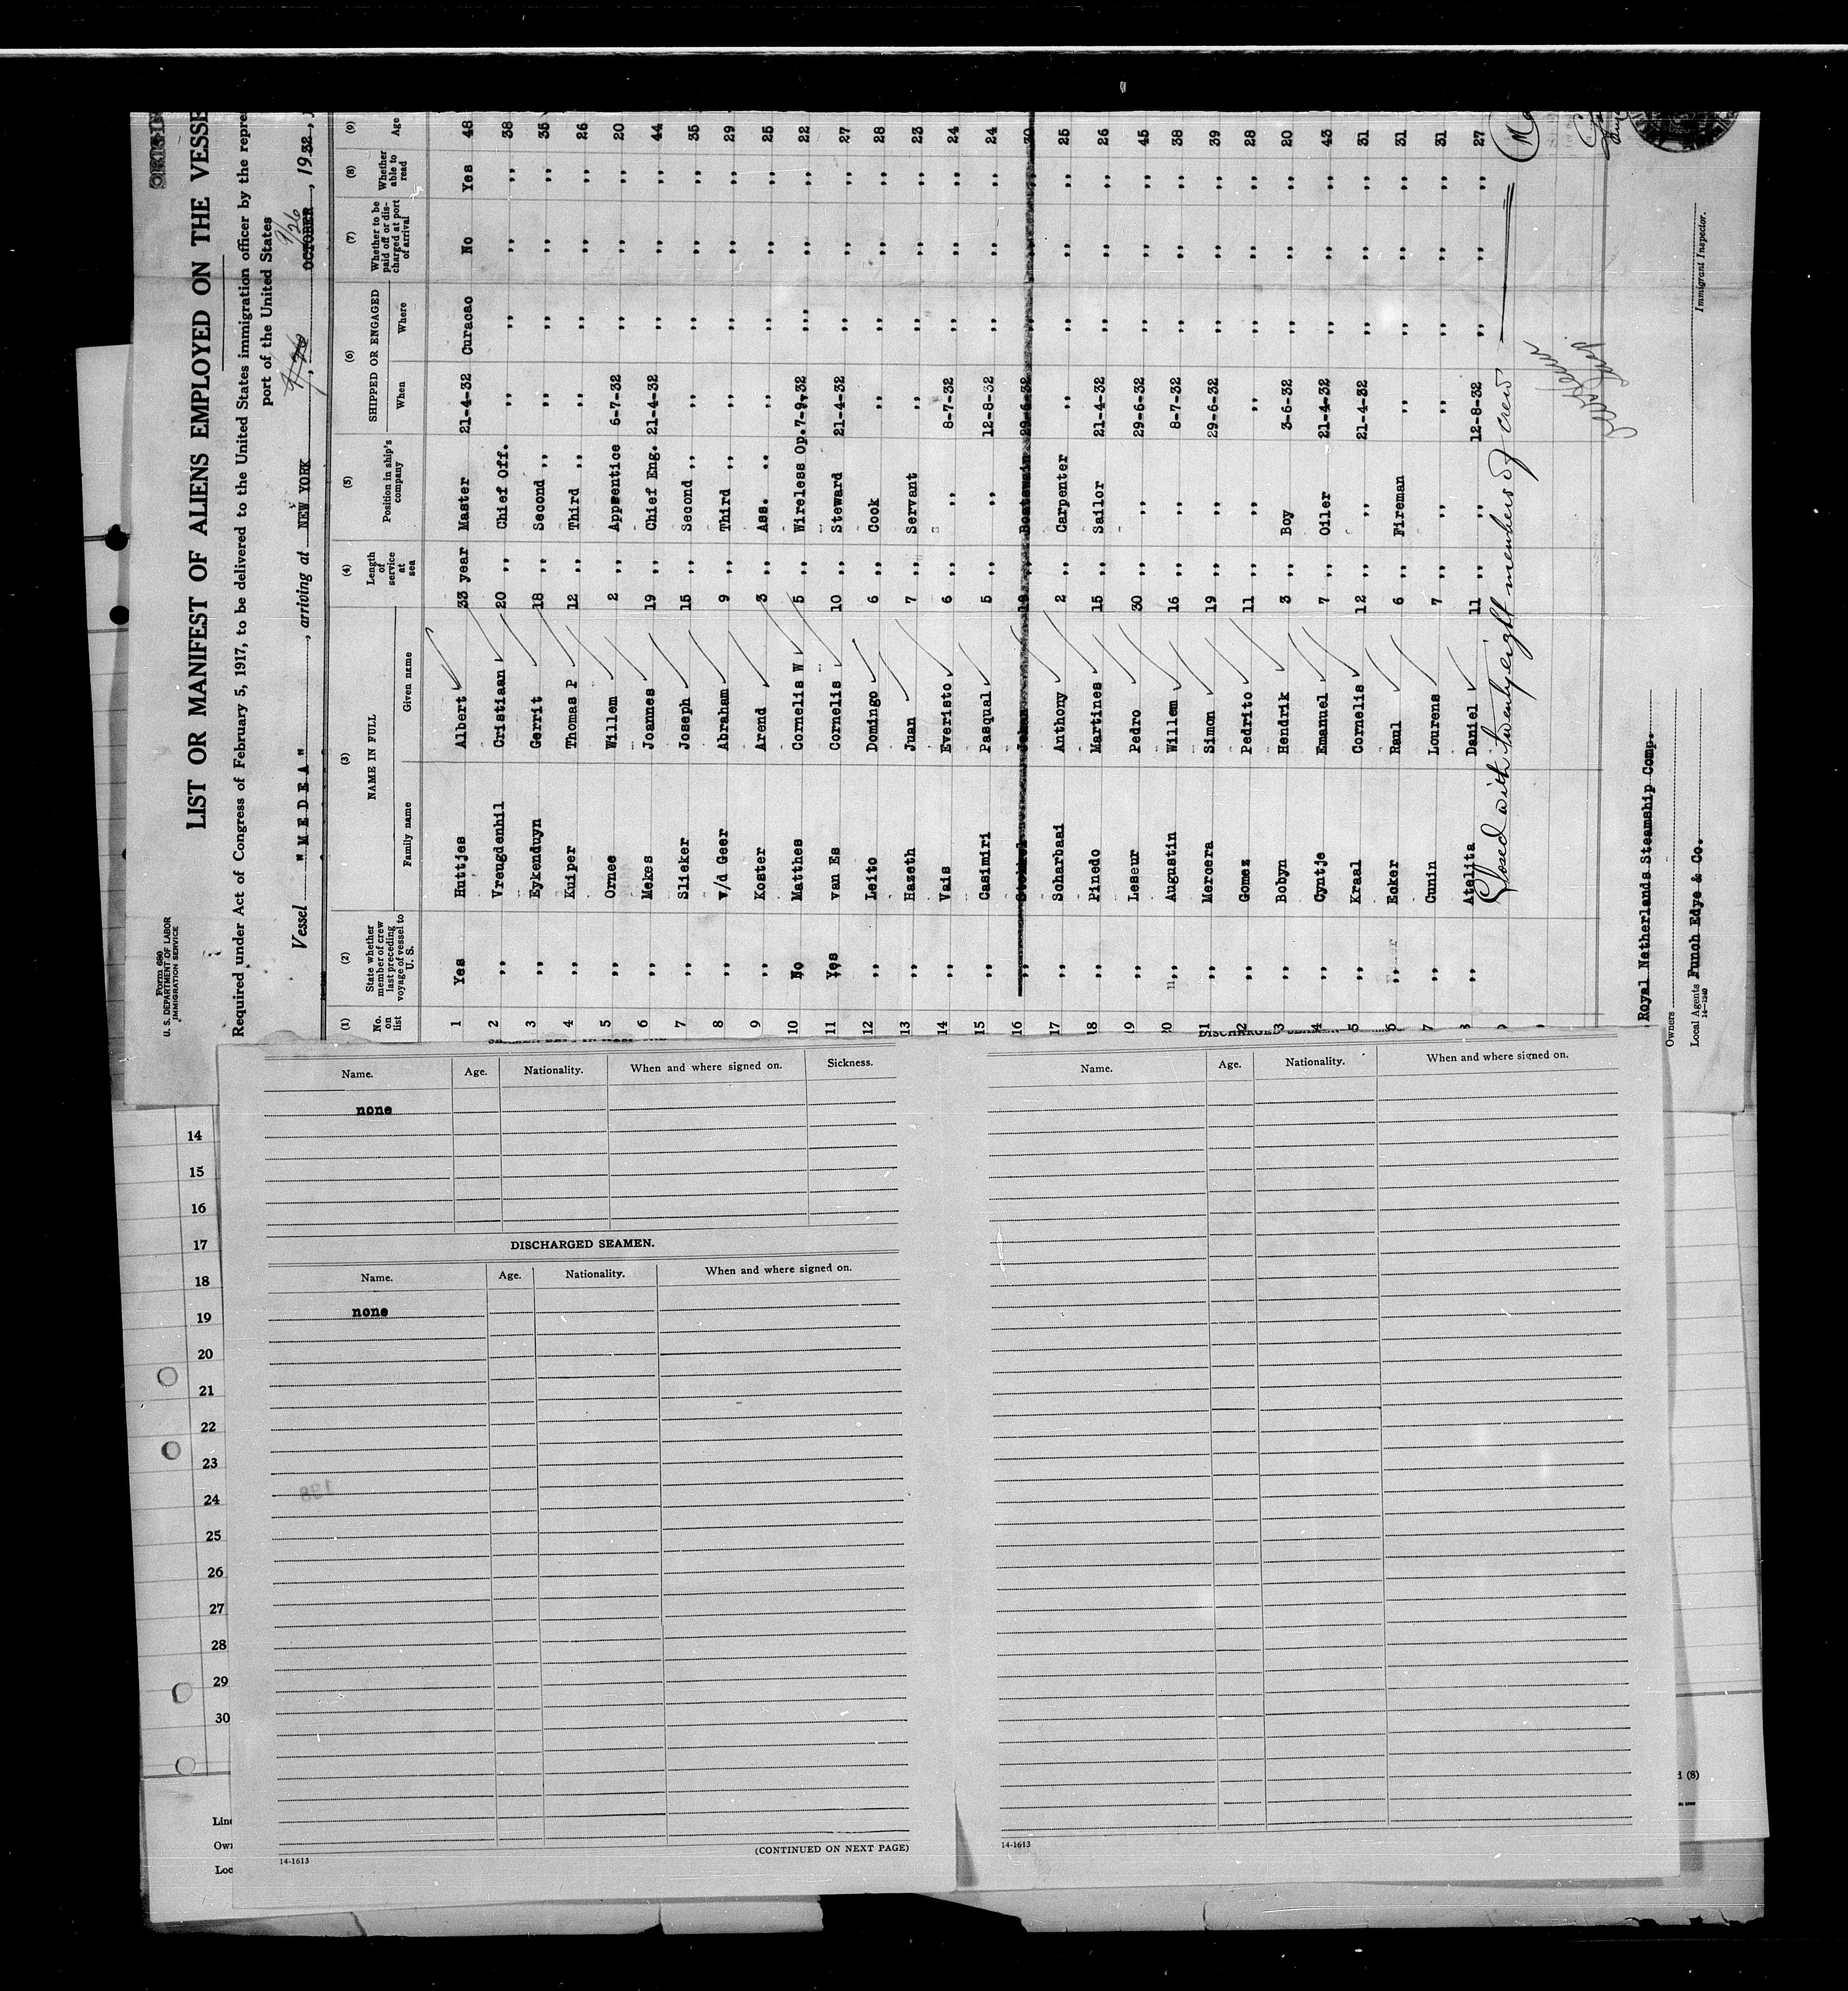 Form 680
U. S. DEPARTMENT OF LABOR
IMMIGRATION SERVICE
LIST OR MANIFEST OF ALIENS EMPLOYED ON THE VESSE
Required under Act of Congress of February 5, 1917, to be delivered to the United States immigration officer by the repre
port of the United States
Vessel "MEDEA", arriving at NEW YORK, 9/26 OCTOBER, 1932,
(1) (2) (3) (4) (5) (6) (7) (8) (9)
No. on list State whether member of crew last preceding voyage of vessel to U. S. NAME IN FULL Length of service at sea Position in ship's company SHIPPED OR ENGAGED Whether to be paid off or discharged at port of arrival Whether able to read Age
Family name Given name When Where
1 Yes Huttjes Albert 33 year Master 21-4-32 Curacao No Yes 48
2 ,, Vreugdenhil Cristiaan 20 ,, Chief Off. ,, ,, ,, ,, 38
3 ,, Eykenduyn Gerrit 18 ,, Second ,, ,, ,, ,, ,, 35
4 ,, Kuiper Thomas P 12 ,, Third ,, ,, ,, ,, ,, 26
5 ,, Ornee Willem 2 ,, Apprentice 6-7-32 ,, ,, ,, 20
6 ,, Mekes Joannes 19 ,, Chief Eng. 21-4-32 ,, ,, ,, 44
7 ,, Slieker Joseph 15 ,, Second ,, ,, ,, ,, ,, 35
8 ,, v/d Geer Abraham 9 ,, Third ,, ,, ,, ,, ,, 29
9 ,, Koster Arend 3 ,, Ass. ,, ,, ,, ,, ,, 25
10 No Matthes Cornelis W 5 ,, Wireless Op. 7-9-32 ,,, ,, ,, 22
11 Yes van Es Cornelis 10 ,, Steward 21-4-32 ,, ,, ,, 27
12 ,, Leito Domingo 6 ,, Cook ,, ,, ,, ,, 28
13 ,, Hazeth Juan 7 ,, Servant ,, ,, ,, ,, 23
14 ,, Vais Everisto 6 ,, ,, 8-7-32 ,, ,, ,, 24
15 ,, Casimiri Pasqual 5 ,, ,, 12-8-32 ,, ,, ,, 24
16 ,, Johan ,, Boatswain 29-6-32 ,, ,, ,, 30
17 ,, Scharbaai Anthony 2 ,, Carpenter ,, ,, ,, ,, 25
18 ,, Pinedo Martines 15 ,, Sailor 21-4-32 ,, ,, ,, 26
19 ,, Leseur Pedro 30 ,, ,, 29-6-32 ,, ,, ,, 45
20 ,, Augustin Willem 16 ,, ,, 8-7-32 ,, ,, ,, 38
1 ,, Mercera Simon 19 ,, ,, 29-6-32 ,, ,, ,, 39
2 ,, Gomez Pedrito 11 ,, ,, ,, ,, ,, ,, 28
3 ,, Bobyn Hendrik 3 ,, Boy 3-6-32 ,, ,, ,, 20
4 ,, Cyntje Emanuel 7 ,, Oiler 21-4-32 ,, ,, ,, 43
5 ,, Kraal Cornelis 12 ,, ,, 21-4-32 ,, ,, ,, 31
6 ,, Ecker Raul 6 ,, Fireman ,, ,, ,, ,, 31
7 ,, Cunin Lourens 7 ,, ,, ,, ,, ,, ,, 31
8 ,, Atalita Daniel 11 ,, ,, 12-8-32 ,, ,, ,, 27
Closed with twenty eight members of crew
Royal Netherlands Steamship Comp.
Owners
Local Agents Funch Edye & Co.
14—1240
Immigrant Inspector.
Name. Age. Nationality. When and where signed on. Sickness.
none
DISCHARGED SEAMEN.
Name. Age. Nationality. When and where signed on.
none
(CONTINUED ON NEXT PAGE)
14-1613
DISCHARGED SEAMEN
Name. Age. Nationality. When and where signed on.
14-1613
14
15
16
17
18
19
20
21
22
23
24
25
26
27
28
29
30
Line
Own
Loc
(8)